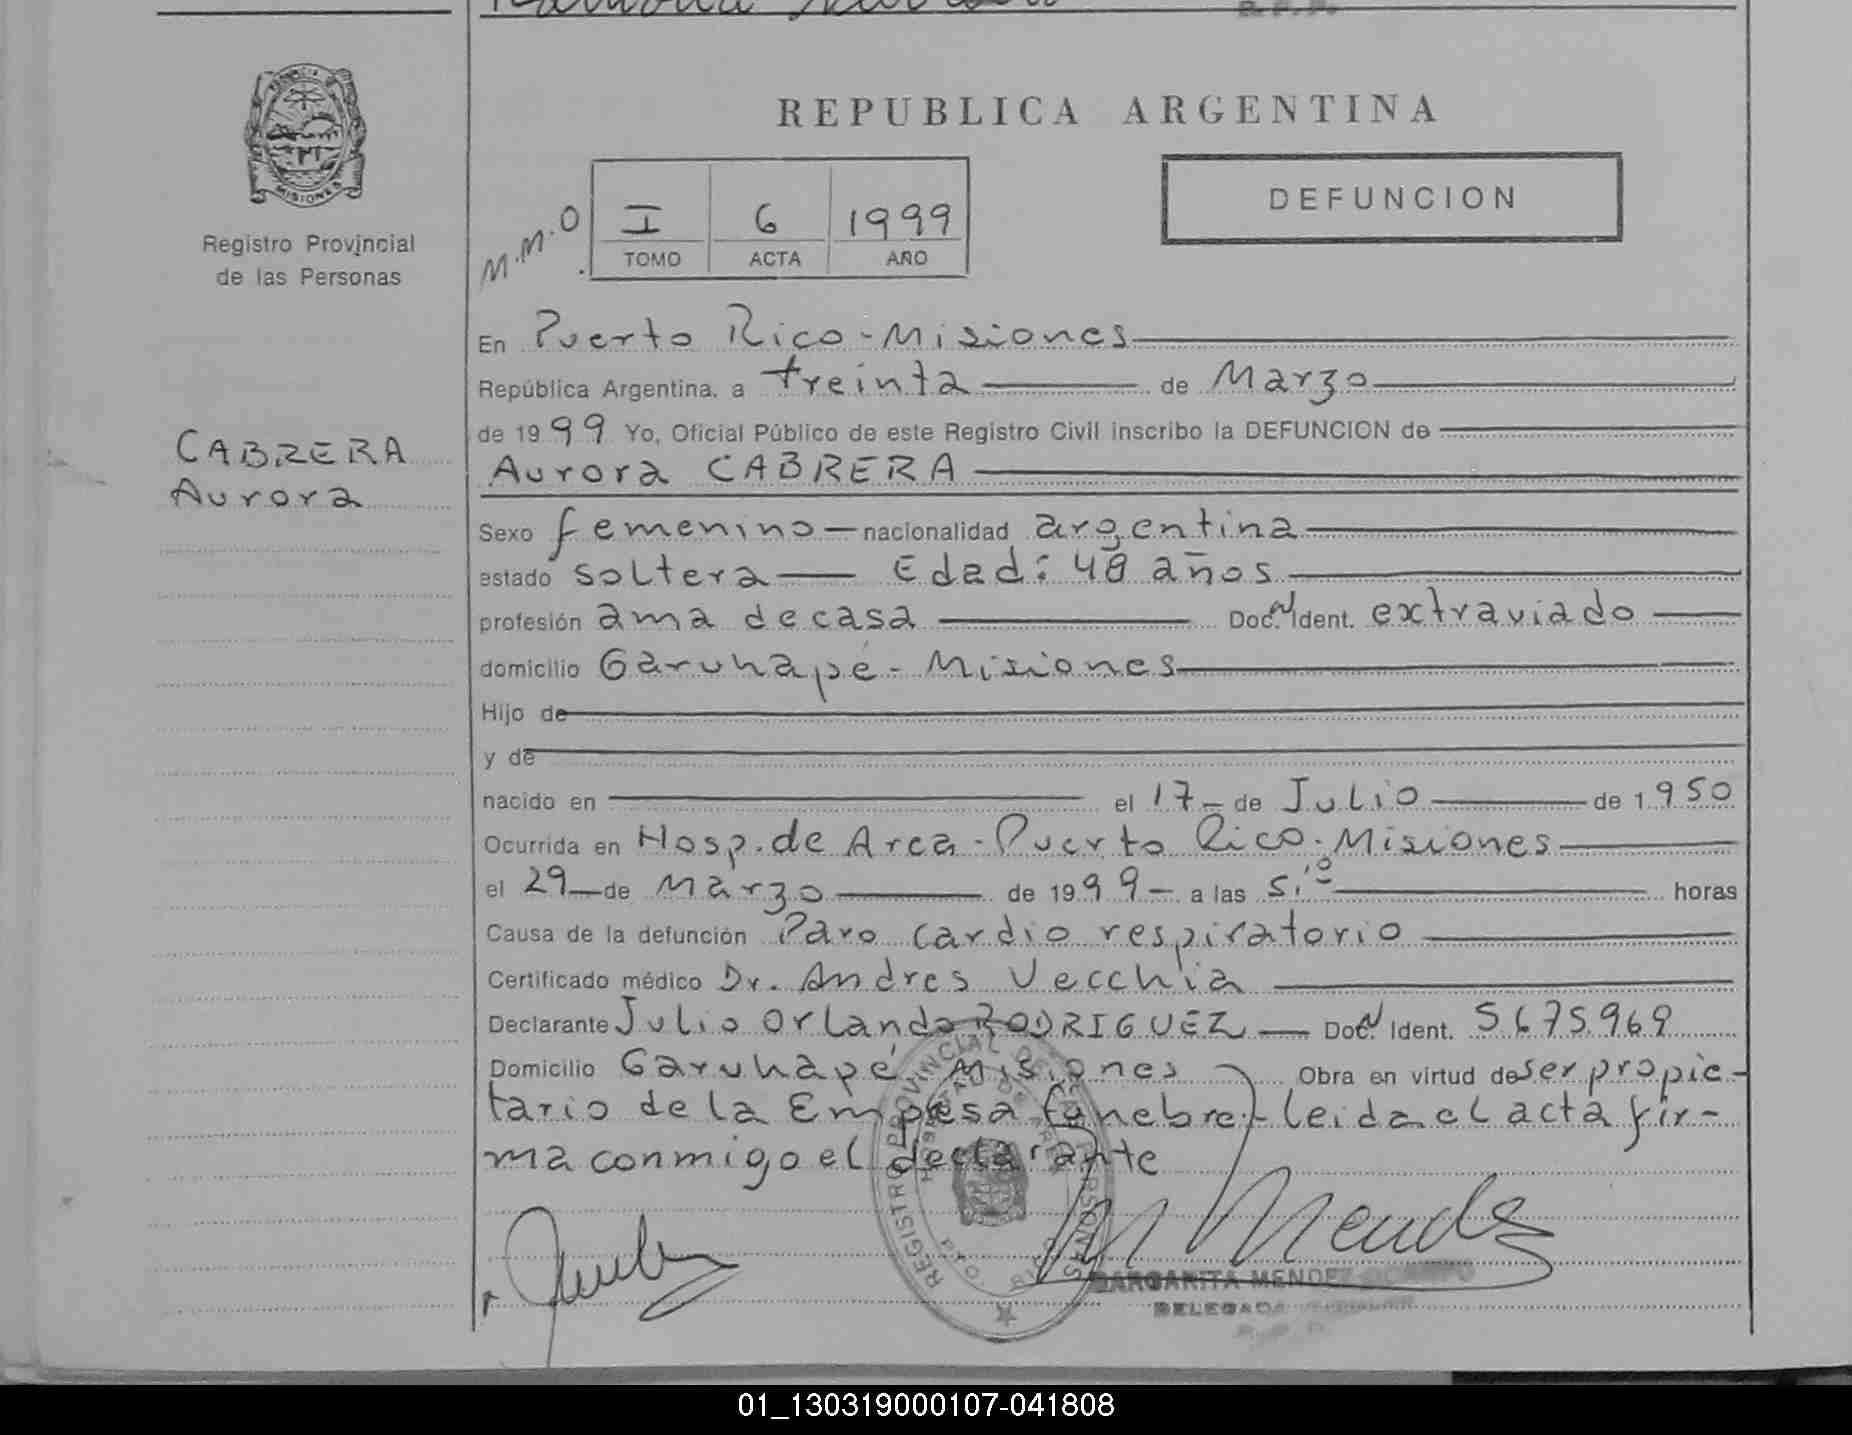 PROVINCIA DE
MISIONES
Registro Provincial
de las Personas
CABRERA
Aurora
REPUBLICA ARGENTINA
DEFUNCION
M.M.O.
I 6 1999
TOMO ACTA AÑO
En Puerto Rico - Misiones
República Argentina, a treinta de Marzo
de 1999 Yo, Oficial Público de este Registro Civil inscribo la DEFUNCION de
Aurora CABRERA
Sexo femenino nacionalidad argentina
estado soltera Edad: 48 años
profesión ama de casa Doc. Ident. extraviado
domicilio Garuhapé - Misiones
Hijo de
y de
nacido en el 17 de Julio de 1950
Ocurrida en Hosp. de Area - Puerto Rico - Misiones
el 29 de Marzo de 1999 - a las 5,10 horas
Causa de la defunción Paro cardio respiratorio
Certificado médico Dr. Andres Vecchia
Declarante Julio Orlando RODRIGUEZ Doc. Ident. 5675969
Domicilio Garuhapé Misiones Obra en virtud de ser propie-
tario de la Empresa fúnebre - leida el acta fir-
ma conmigo el declarante
REGISTRO PROVINCIAL DE LAS PERSONAS
PTO. RICO
M Mendez
MARGARITA MENDEZ OCAMPO
DELEGADA
01_130319000107-041808